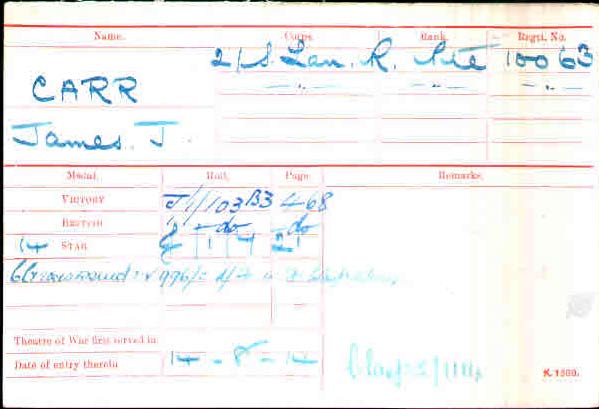 Name. Corps. Rank. Regtl. No.
2/S. Lan. R. Pte 10063
CARR — " — — " — — " —
James. J.
Medal. Roll. Page. Remarks.
VICTORY J/1/103 B3 468
BRITISH " - do - do
14 STAR
Theatre of War first served in
Date of entry therein 14 - 8 - 14
K. 1380.